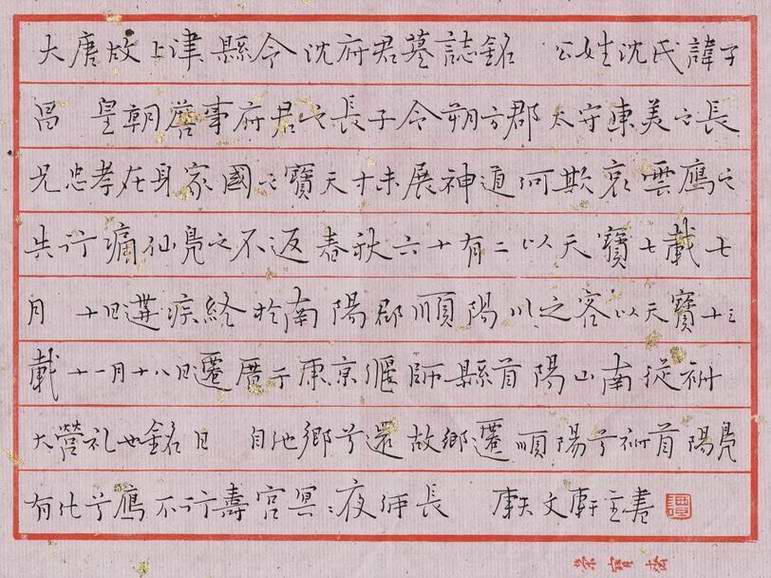 大唐故上津縣令沈府君墓誌銘 公姓沈氏諱子
昌 皇朝詹事府君之長子令朔方郡太守東美之長
兄忠孝在身家國之寶天才未展神道何欺哀雲鴈之
失行痛仙鳧之不返春秋六十有二以天寶七載七
月 十日遘疾終於南陽郡順陽川之客以天寶十三
載十一月十八日遷厝于東京偃師縣首陽山南從祔
大塋礼也銘曰 自他鄉兮還故鄉遷順陽兮祔首陽鳧
有化兮鴈不行壽宮冥冥夜何長 文軒主書
榮寶齋